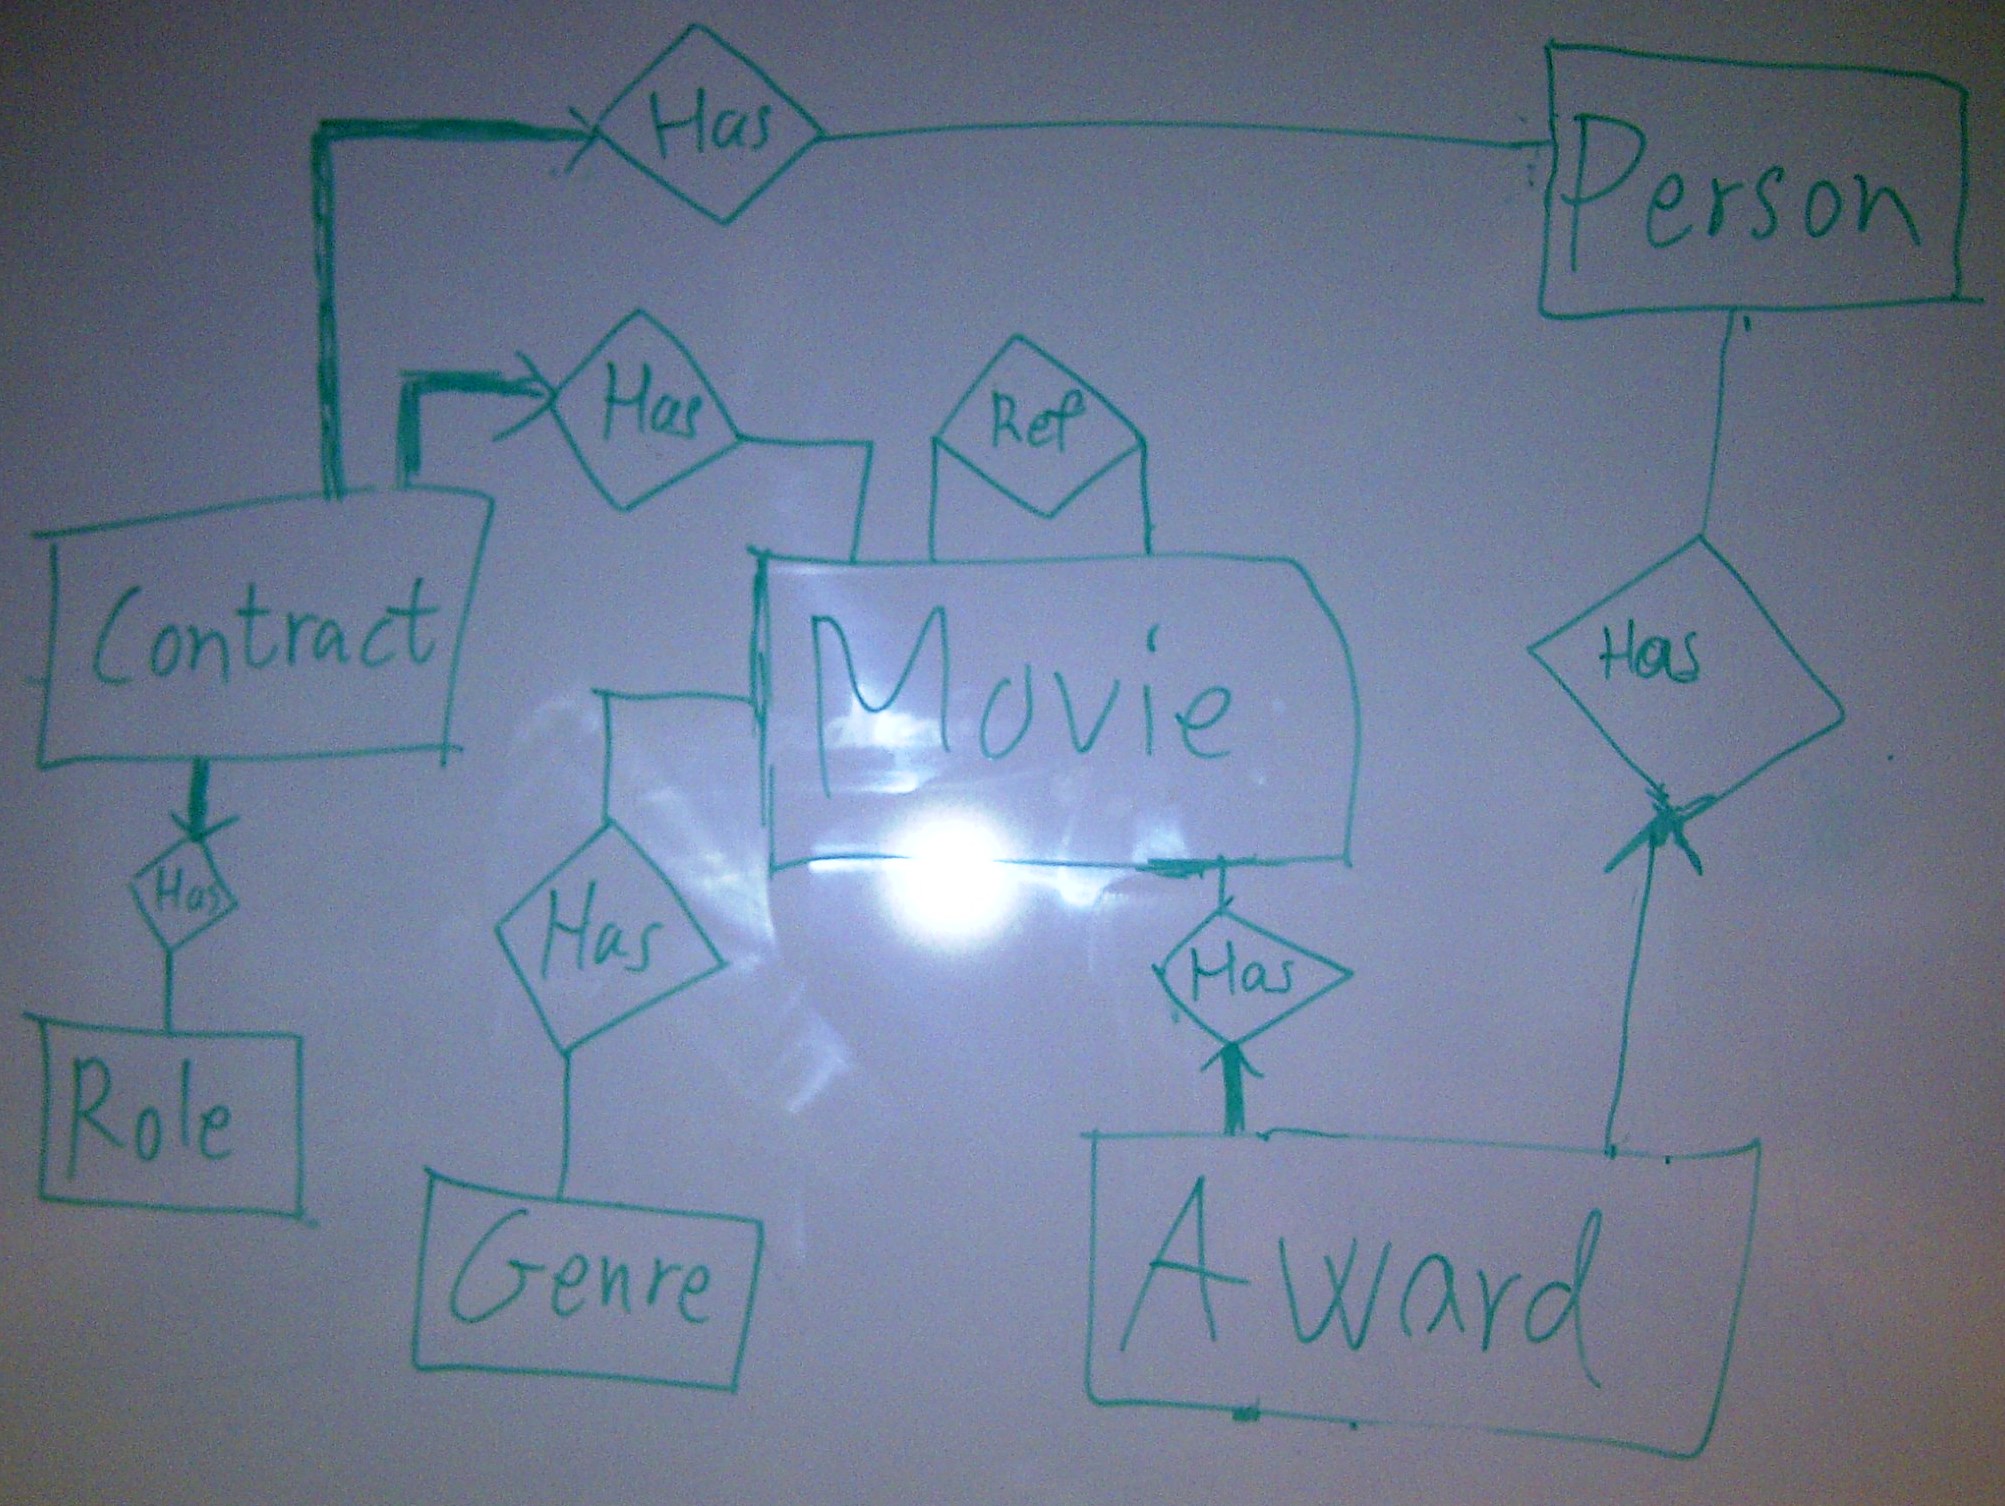 Has
Person
Has
Ref
Contract
Movie
Has
Has
Has
Has
Role
Genre
Award